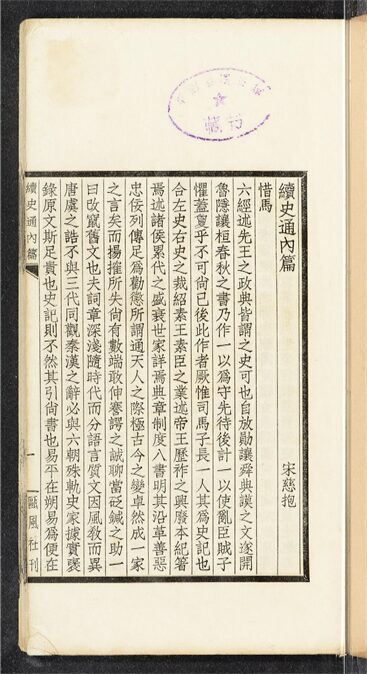 續史通內篇
宋慈抱
惜馬
六經述先王之政典皆謂之史可也自放勛讓舜典謨之文遂開
魯隱讓桓春秋之書乃作一以為守先待後計一以使亂臣賊子
懼蓋戛乎不可尚已後此作者厥惟司馬子長一人其為史記也
合左史右史之裁紹素王素臣之業述帝王歷祚之興廢本紀著
焉述諸侯累代之盛衰世家詳焉典章制度八書明其沿革善惡
忠佞列傳足為勸懲所謂通天人之際極古今之變卓然成一家
之言矣而揚搉所失尚有數端敢伸謇諤之誠聊當砭鍼之助一
曰改竄舊文也夫詞章深淺隨時代而分語言質文因風教而異
唐虞之誥不與三代同觀秦漢之辭必與六朝殊軌史家據實裒
錄原文斯足貴也史記則不然其引尚書也易平在朔易為便在
續史通內篇
一
甌風社刊